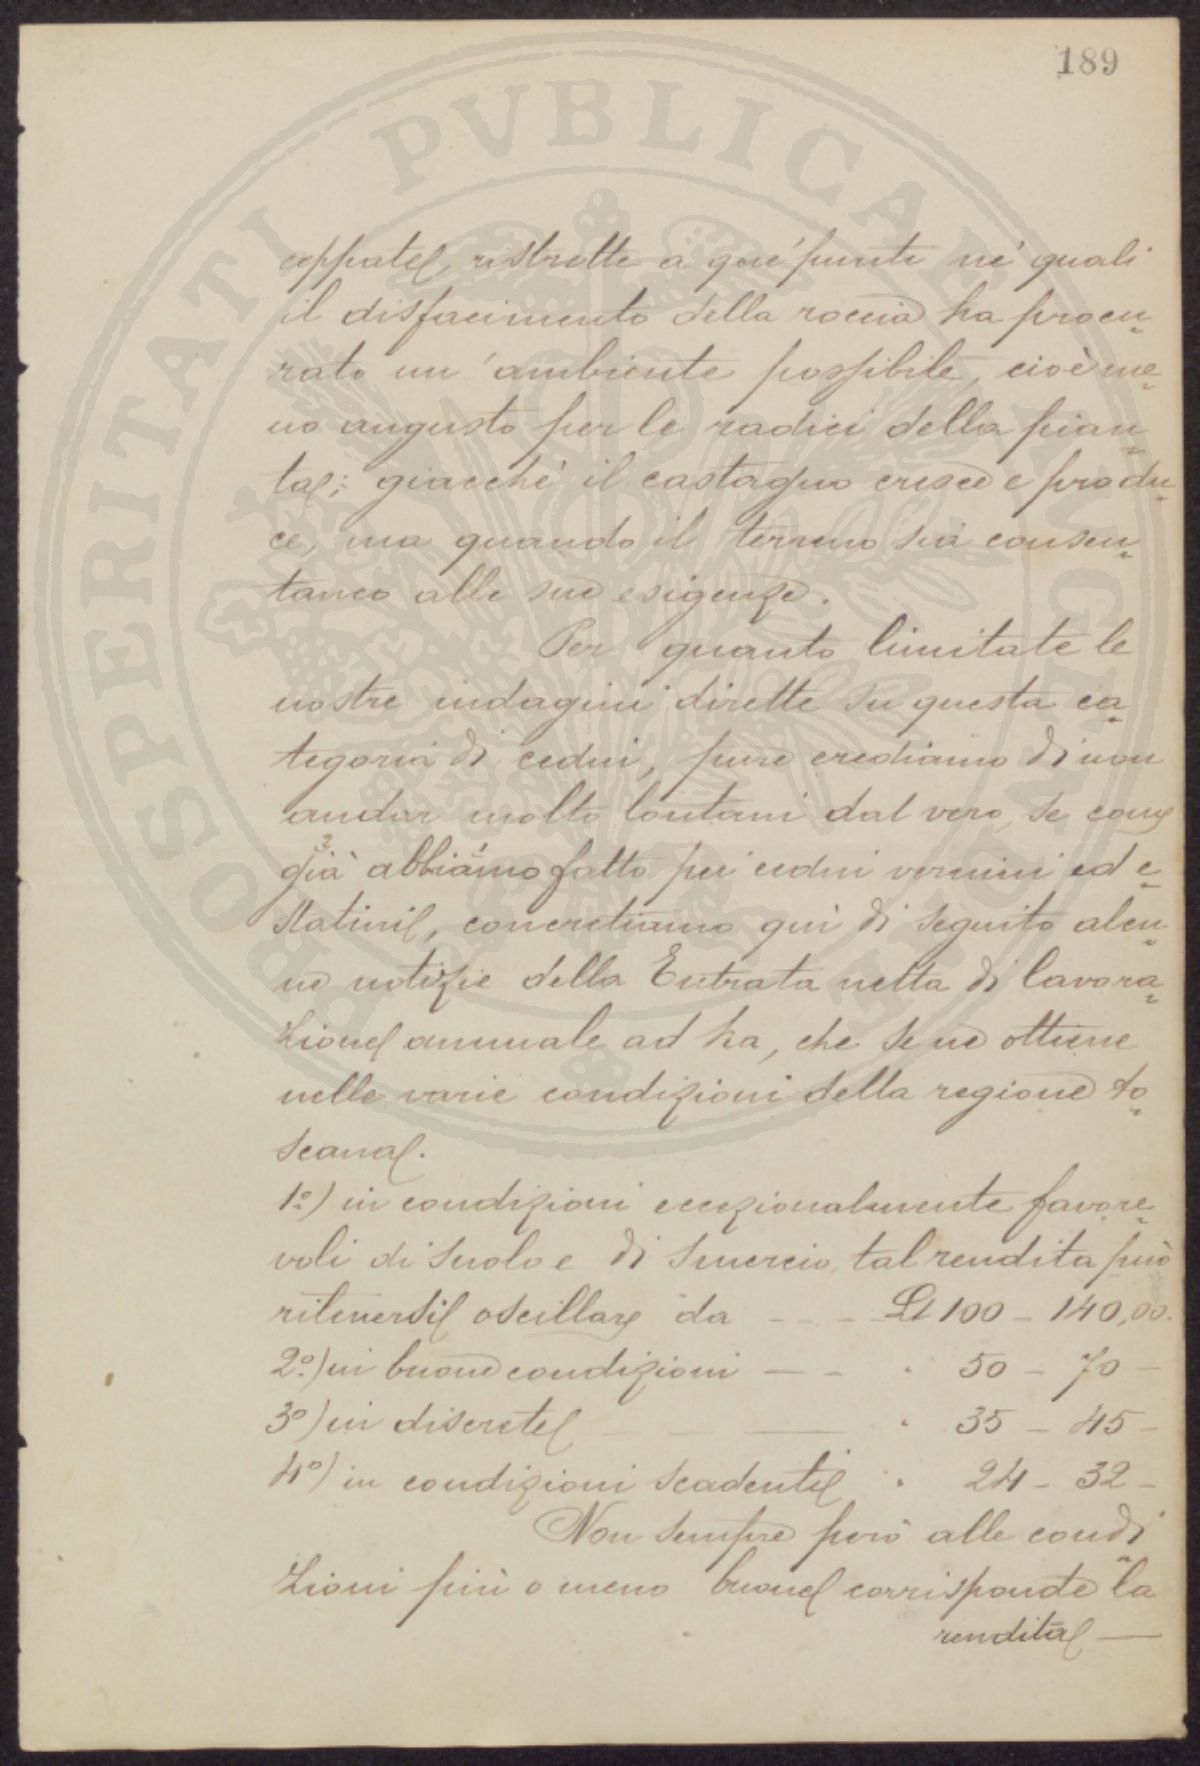 189
PROSPERITATI PVBLICAE AVGENDAE
ceppate, ristrette a que' punti ne' quali
il disfacimento della roccia ha procu=
rato un' ambiente possibile, cioè me=
no angusto per le radici della pian=
ta; giacchè il castagno cresce e produ=
ce, ma quando il terreno sia consen=
taneo alle sue esigenze.
Per quanto limitate le
nostre indagini dirette su questa ca=
tegoria di cedui, pure crediamo di non
andar molto lontani dal vero, se come
2 1
già abbiamo fatto pei cedui vernini ed e=
statini, concretiamo qui di seguito alcu=
ne notizie della Entrata netta di lavora=
zione annuale ad ha, che se ne ottiene
nelle varie condizioni della regione to=
scana.
1º) in condizioni eccezionalmente favore=
voli di suolo e di smercio, tal rendita può
ritenersi oscillare da - - - Lt 100 - 140,00.
2º) in buone condizioni — - " 50 - 70 -
3º) in discrete — — " 35 - 45 -
4º) in condizioni scadenti " 24 - 32 -
Non sempre però alle condi=
zioni più o meno buone corrisponde la
rendita —